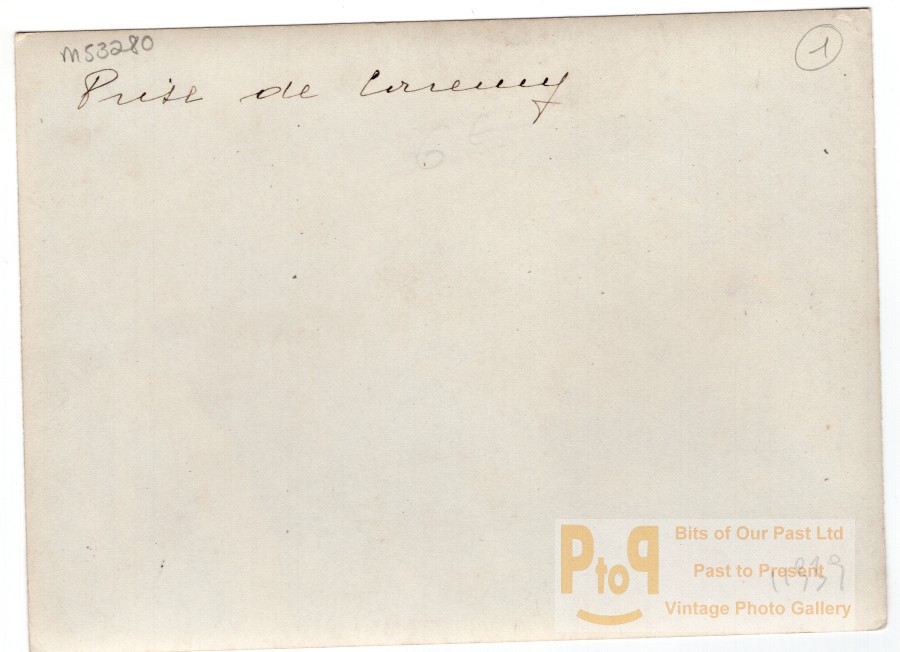 M53280
1
Prise de
6 E
PtoP
Bits of Our Past Ltd
Past to Present
Vintage Photo Gallery